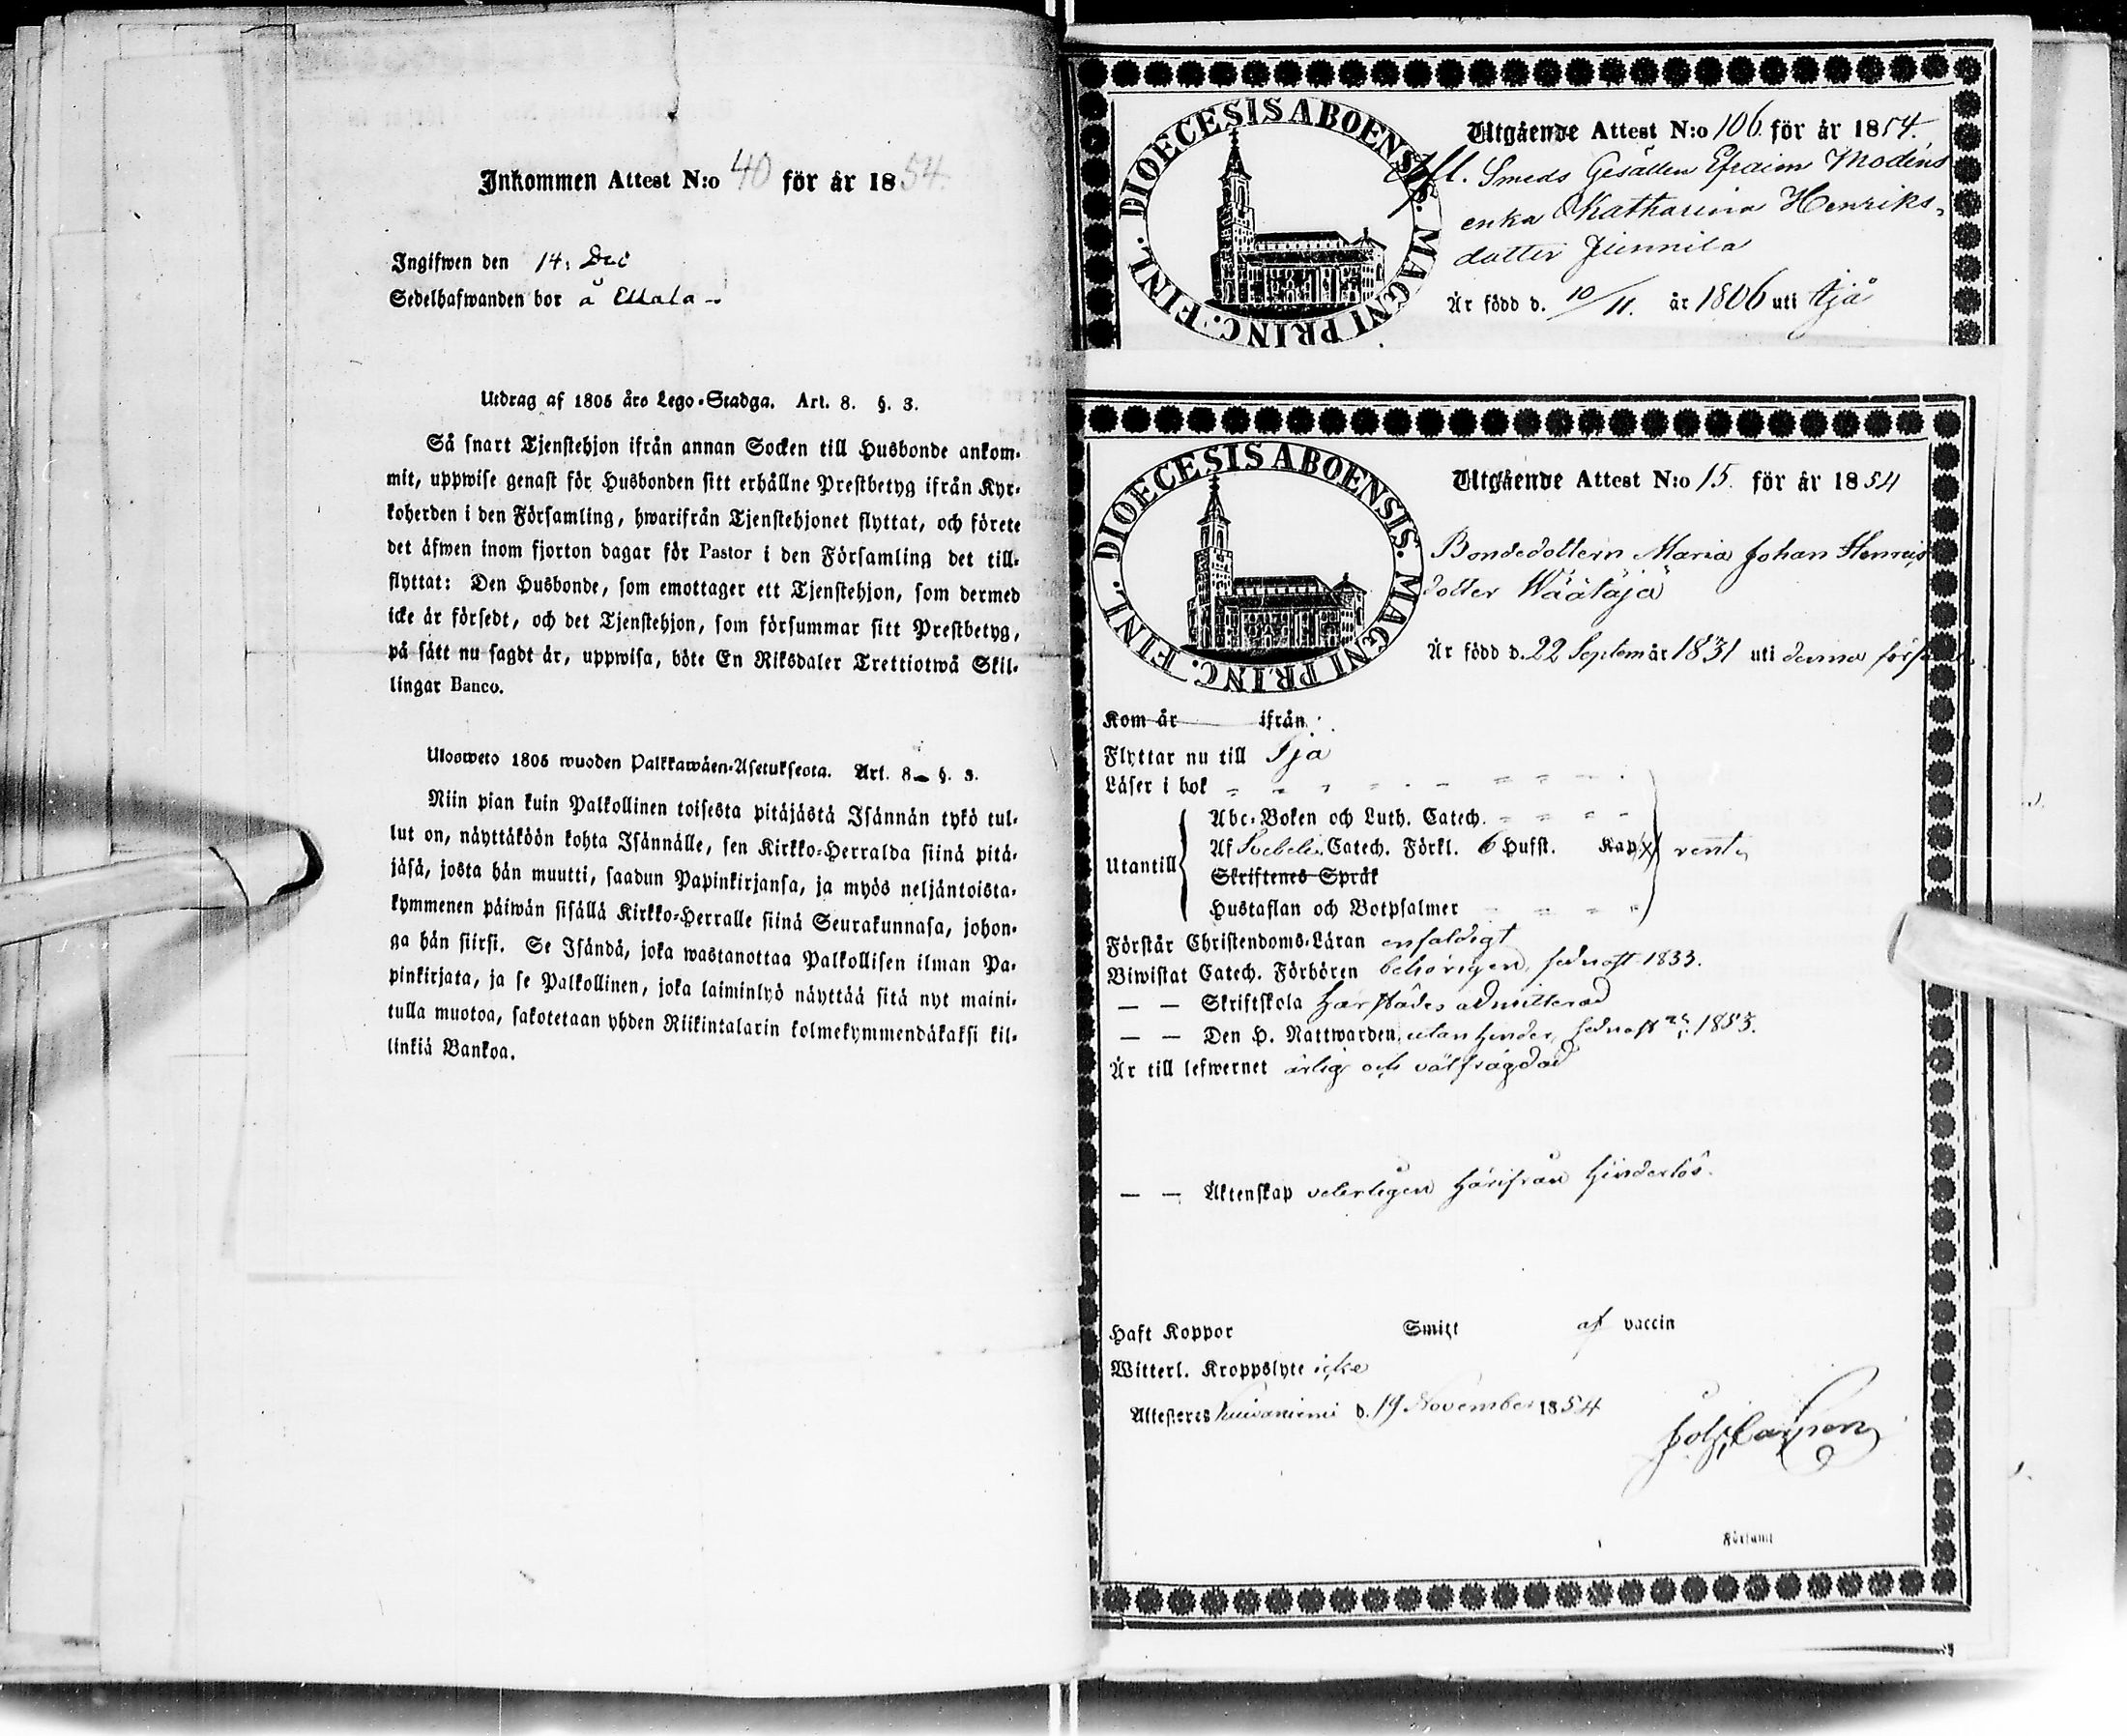 Inkommen Attest N:o 40 för år 1854.
Ingifwen den 14. Dec
Sedelhafwanden bor å Ettala
Utdrag af 1805 års Lego-Stadga. Art. 8. §. 3.
Så snart Tjenstehjon ifrån annan Socken till Husbonde ankom-
mit, uppwise genast för Husbonden sitt erhållne Prestbetyg ifrån Kyr-
koherden i den Församling, hwarifrån Tjenstehjonet flyttat, och förete
det äfwen inom fjorton dagar för Pastor i den Församling det till-
flyttat: Den Husbonde, som emottager ett Tjenstehjon, som dermed
icke är försedt, och det Tjenstehjon, som försummar sitt Prestbetyg,
på sätt nu sagdt är, uppwisa, böte En Riksdaler Trettiotwå Skil-
lingar Banco.
Ulosweto 1805 wuoden Palkkawäen-Asetuksesta. Art. 8. §. 3.
Niin pian kuin Palkollinen toisesta pitäjästä Isännän tykö tul-
lut on, näyttäköön kohta Isännälle, sen Kirkko-Herralda siinä pitä-
jäsä, josta hän muutti, saadun Papinkirjansa, ja myös neljäntoista-
kymmenen päiwän sisällä Kirkko-Herralle siinä Seurakunnasa, johon-
ga hän siirsi. Se Isändä, joka wastanottaa Palkollisen ilman Pa-
pinkirjata, ja se Palkollinen, joka laiminlyö näyttää sitä nyt maini-
tulla muotoa, sakotetaan yhden Riikintalarin kolmekymmendäkaksi kil-
linkiä Bankoa.
DIOECESIS ABOENSIS. MAGNI PRINC. FINL.
Utgående Attest N:o 106 för år 1854.
Smeds Gesällen Efraim Modéns
enka Katharina Henriks-
dotter Junnila
Är född d. 10/11. år 1806 uti Ijå
DIOECESIS ABOENSIS. MAGNI PRINC. FINL.
Utgående Attest N:o 15. för år 1854
Bondedottern Maria Johan Henriks
dotter Wäätäjä
Är född d. 22 Septem år 1831 uti denna förs
Kom år ifrån
Flyttar nu till Ijå
Läser i bok
Utantill
Abc-Boken och Luth. Catech.
Af Svebelii Catech. Förkl. 6 Hufst. Kap. rent
Skriftenes Språk
Hustaflan och Botpsalmer
Förstår Christendoms-Läran enfaldigt
Biwistat Catech. Förhören behörigen, sednast 1853.
— — Skriftskola härstädes admitterad
— — Den H. Nattwarden utan hinder, sednast 1853.
Är till lefwernet ärlig och välfrägdad
— — Äktenskap vederligen härifrån hinderlös.
Haft Koppor Smitt af vaccin
Witterl. Kroppslyte icke
Attesteres Kuivaniemi d. 19 November 1854
Församl